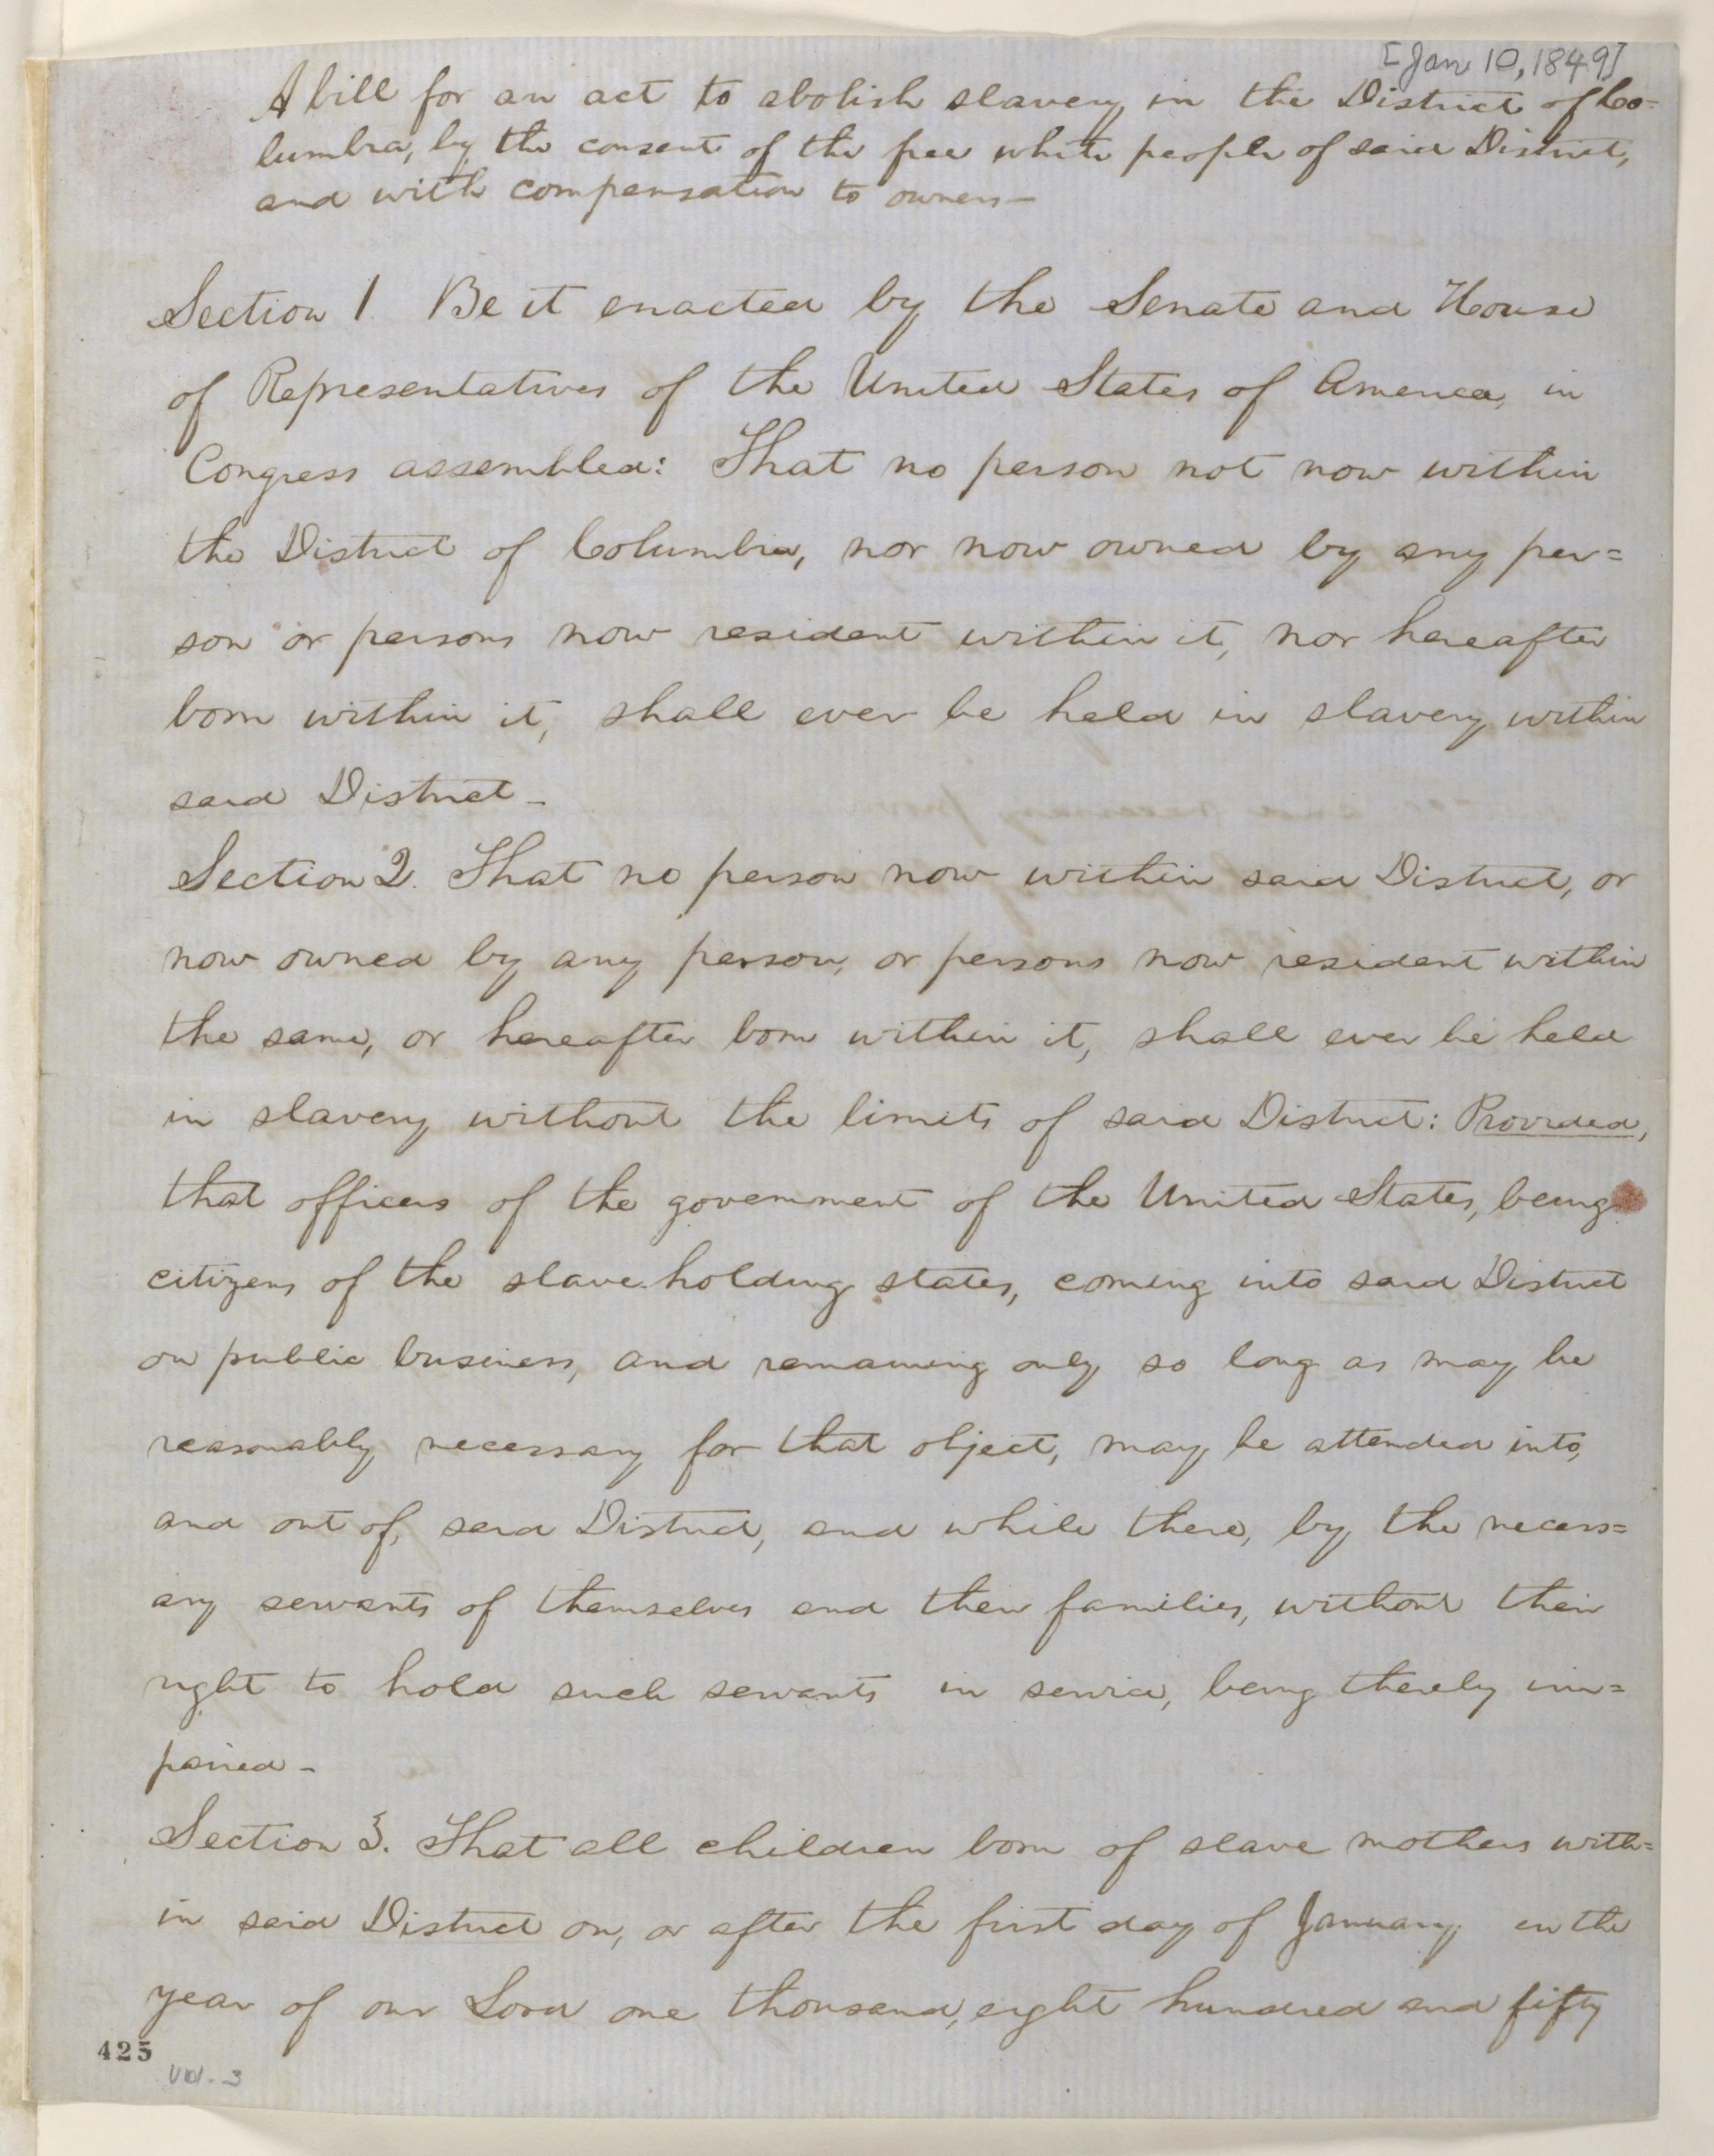 [Jan 10, 1849]
A bill for an act to abolish slavery in the District of Co=
lumbia, by the consent of the free white people of said District,
and with compensation to owners—
Section 1. Be it enacted by the Senate and House
of Representatives of the United States of America, in
Congress assembled: That no person not now within
the District of Columbia, nor now owned by any per=
son or persons now resident within it, nor hereafter
born within it, shall ever be held in slavery within
said District—
Section 2. That no person now within said District, or
now owned by any person, or persons now resident within
the same, or hereafter born within it, shall ever be held
in slavery without the limits of said District: Provided,
that officers of the government of the United States, being
citizens of the slave-holding states, coming into said District
on public business, and remaining only so long as may be
reasonably necessary for that object, may be attended into,
and out of, said District, and while there, by the necess=
ary servants of themselves and their families, without their
right to hold such servants in service, being thereby im=
paired—
Section 3. That all children born of slave mothers with=
in said District on, or after the first day of January, in the
year of our Lord one thousand, eight hundred and fifty
425
Vol. 3